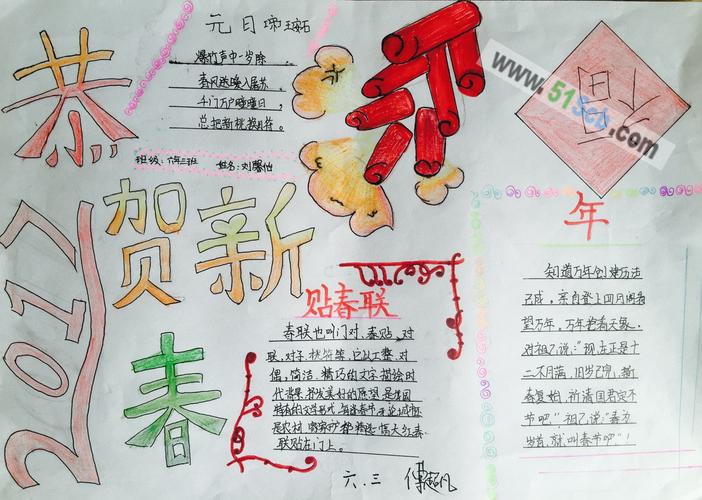 恭
贺新
春
2017
元日 王安石
爆竹声中一岁除
春风送暖入屠苏
千门万户曈曈日，
总把新桃换旧符。
班级：六年三班 姓名：刘馨怡
www.51Scb.com
福
贴春联
春联也叫门对、春贴、对
联、对子、桃符等，它以工整、对
偶、简洁、精巧的文字描绘时
代背景，抒发美好的愿望，是我国
特有的文学形式。每逢春节，无论城市还
是农村，家家户户都精选一幅大红春
联贴在门上。
六．三
年
知道万年创建历法
已成，亲自登上日月阁看
望万年。万年指着天象，
对祖乙说：“现在正是十
二个月满，旧岁已完，新
春复始，祈请国君定个
节吧”。祖乙说：“春为
岁首，就叫春节吧”！